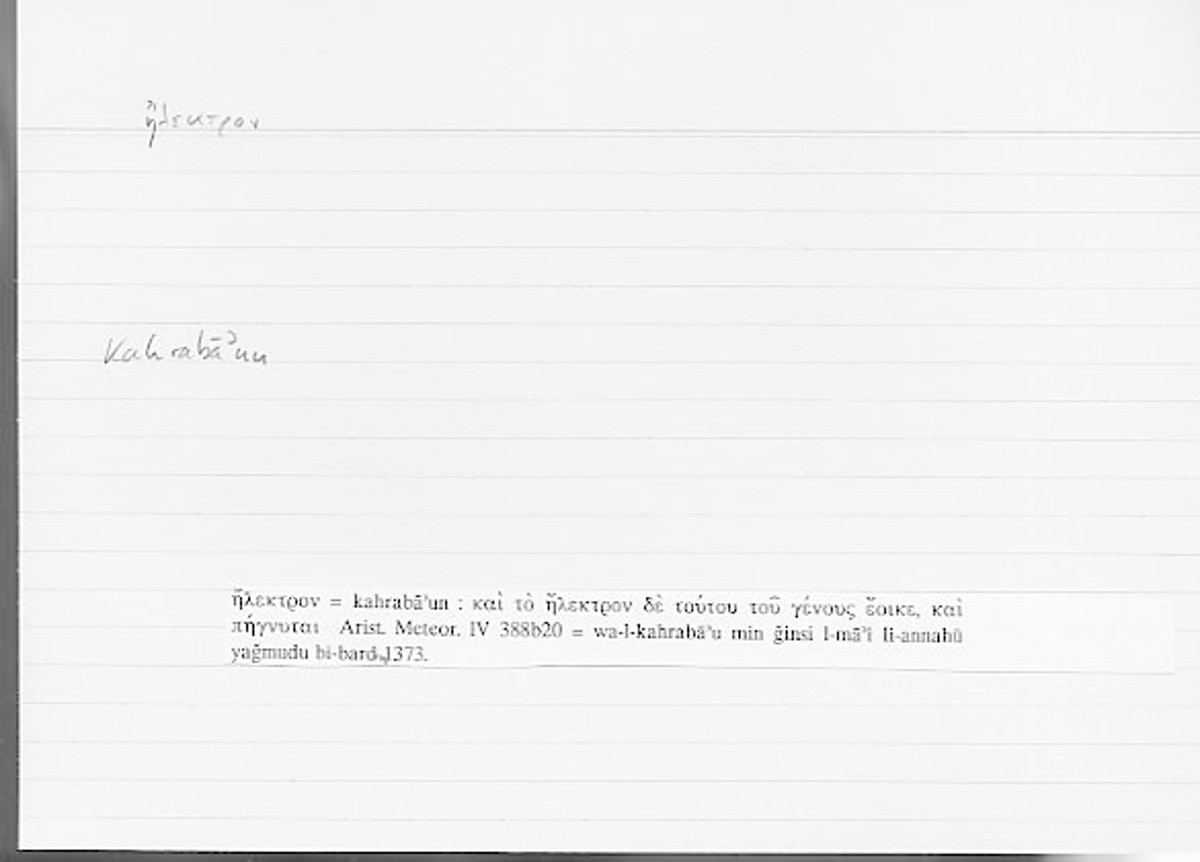 ἤλεκτρον
kahrabāʾun
ἤλεκτρον = kahrabāʾun : καὶ τὸ ἤλεκτρον δὲ τούτου τοῦ γένους ἔοικε, καὶ
πήγνυται Arist. Meteor. IV 388b20 = wa-l-kahrabāʾu min ǧinsi l-māʾi li-annahū
yaǧmudu bi-bardi 1373.